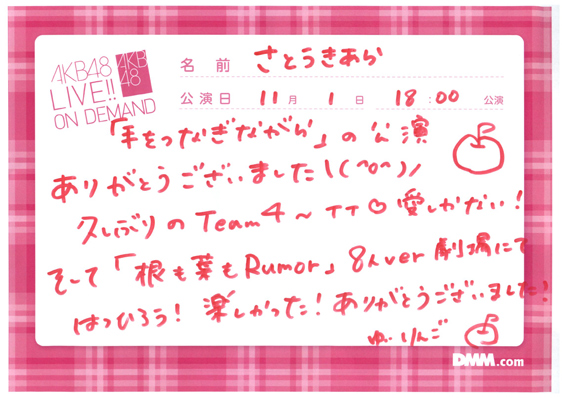 AKB48
LIVE!!
ON DEMAND
AKB
48
名前 さとうきあら
公演日 11月 1日 18:00 公演
「手をつなぎながら」の公演
ありがとうございました\(^o^)/
久しぶりのTeam4〜TT♡愛しかない!
そして「根も葉もRumor」8人ver 劇場にて
はつひろう! 楽しかった! ありがとうございました!
ゆいりんご
DMM.com